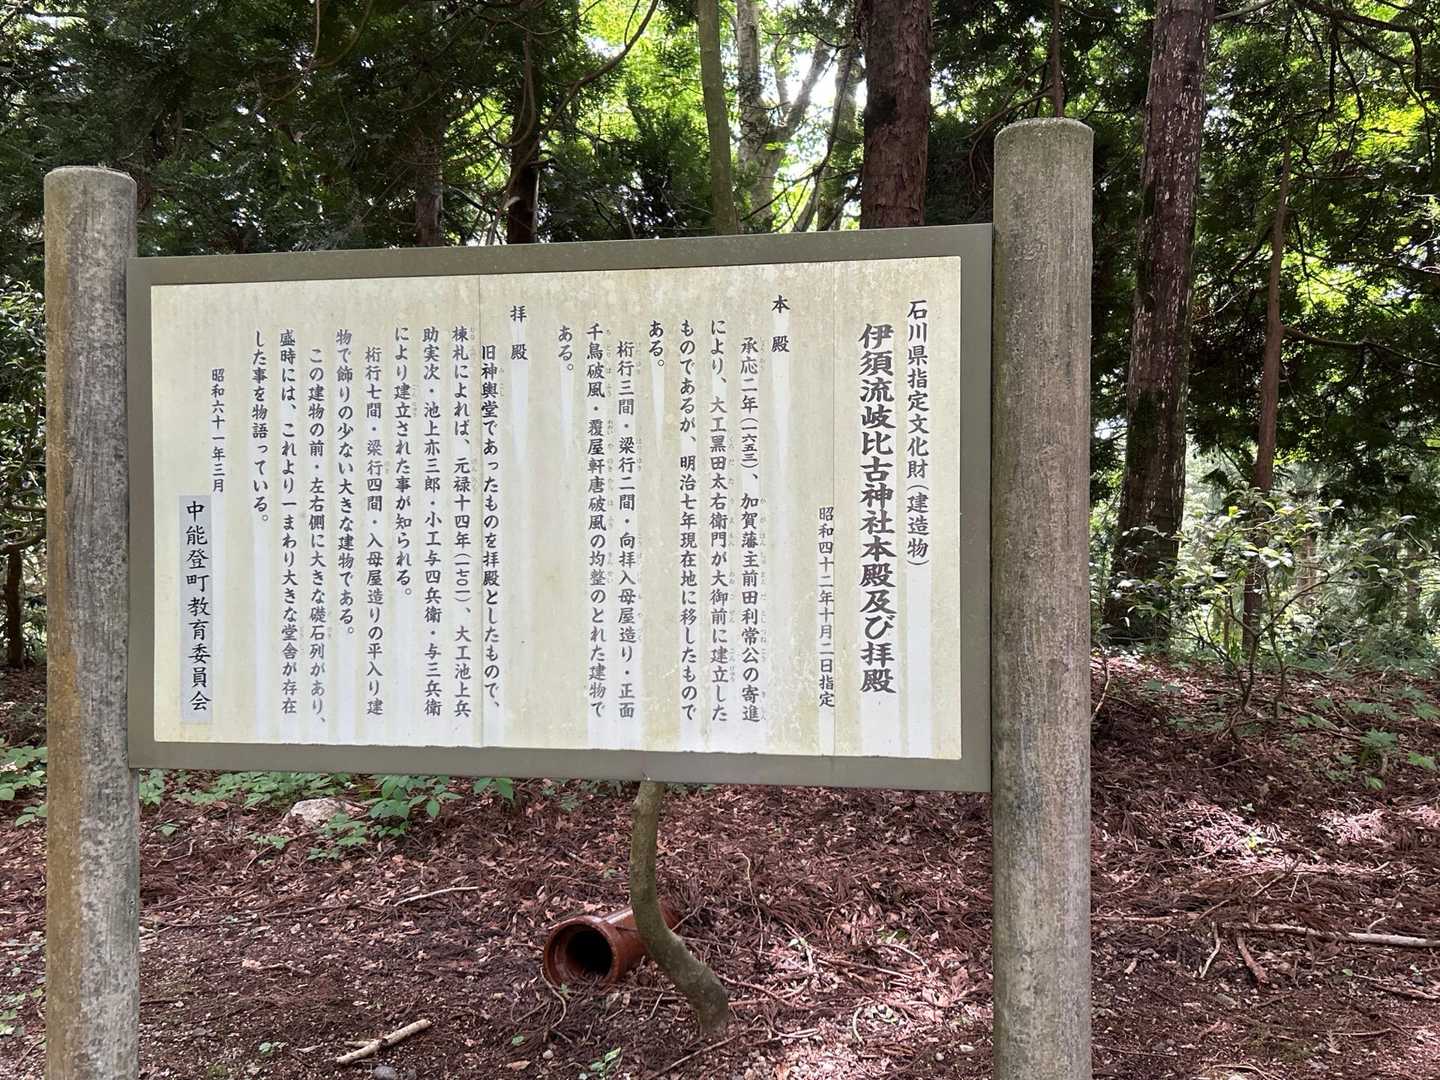 石川県指定文化財（建造物）
伊須流岐比古神社本殿及び拝殿
昭和四十二年十月二日指定
本殿
承応二年（一六五三）、加賀藩主前田利常公の寄進
により、大工黒田太右衛門が大御前に建立した
ものであるが、明治七年現在地に移したもので
ある。
桁行三間・梁行二間・向拝入母屋造り・正面
千鳥破風・覆屋軒唐破風の均整のとれた建物で
ある。
拝殿
旧神輿堂であったものを拝殿としたもので、
棟札によれば、元禄十四年（一七〇一）、大工池上兵
助実次・池上亦三郎・小工与四兵衛・与三兵衛
により建立された事が知られる。
桁行七間・梁行四間・入母屋造りの平入り建
物で飾りの少ない大きな建物である。
この建物の前・左右側に大きな礎石列があり、
盛時には、これより一まわり大きな堂舎が存在
した事を物語っている。
昭和六十一年三月
中能登町教育委員会